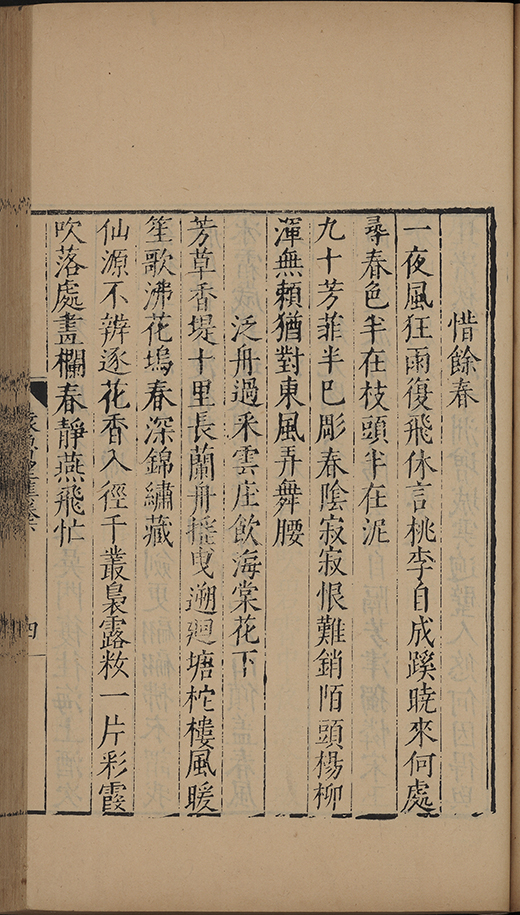 惜餘春
一夜風狂雨復飛休言桃李自成蹊曉來何處
尋春色半在枝頭半在泥
九十芳菲半已彫春陰寂寂恨難銷陌頭楊柳
渾無賴猶對東風弄舞腰
泛舟過釆雲庄飲海棠花下
芳草香堤十里長蘭舟搖曳遡迴塘柁樓風暖
笙歌沸花塢春深錦繡藏
仙源不辨逐花香入徑千叢裊露妝一片彩霞
吹落處畫欄春靜燕飛忙
四